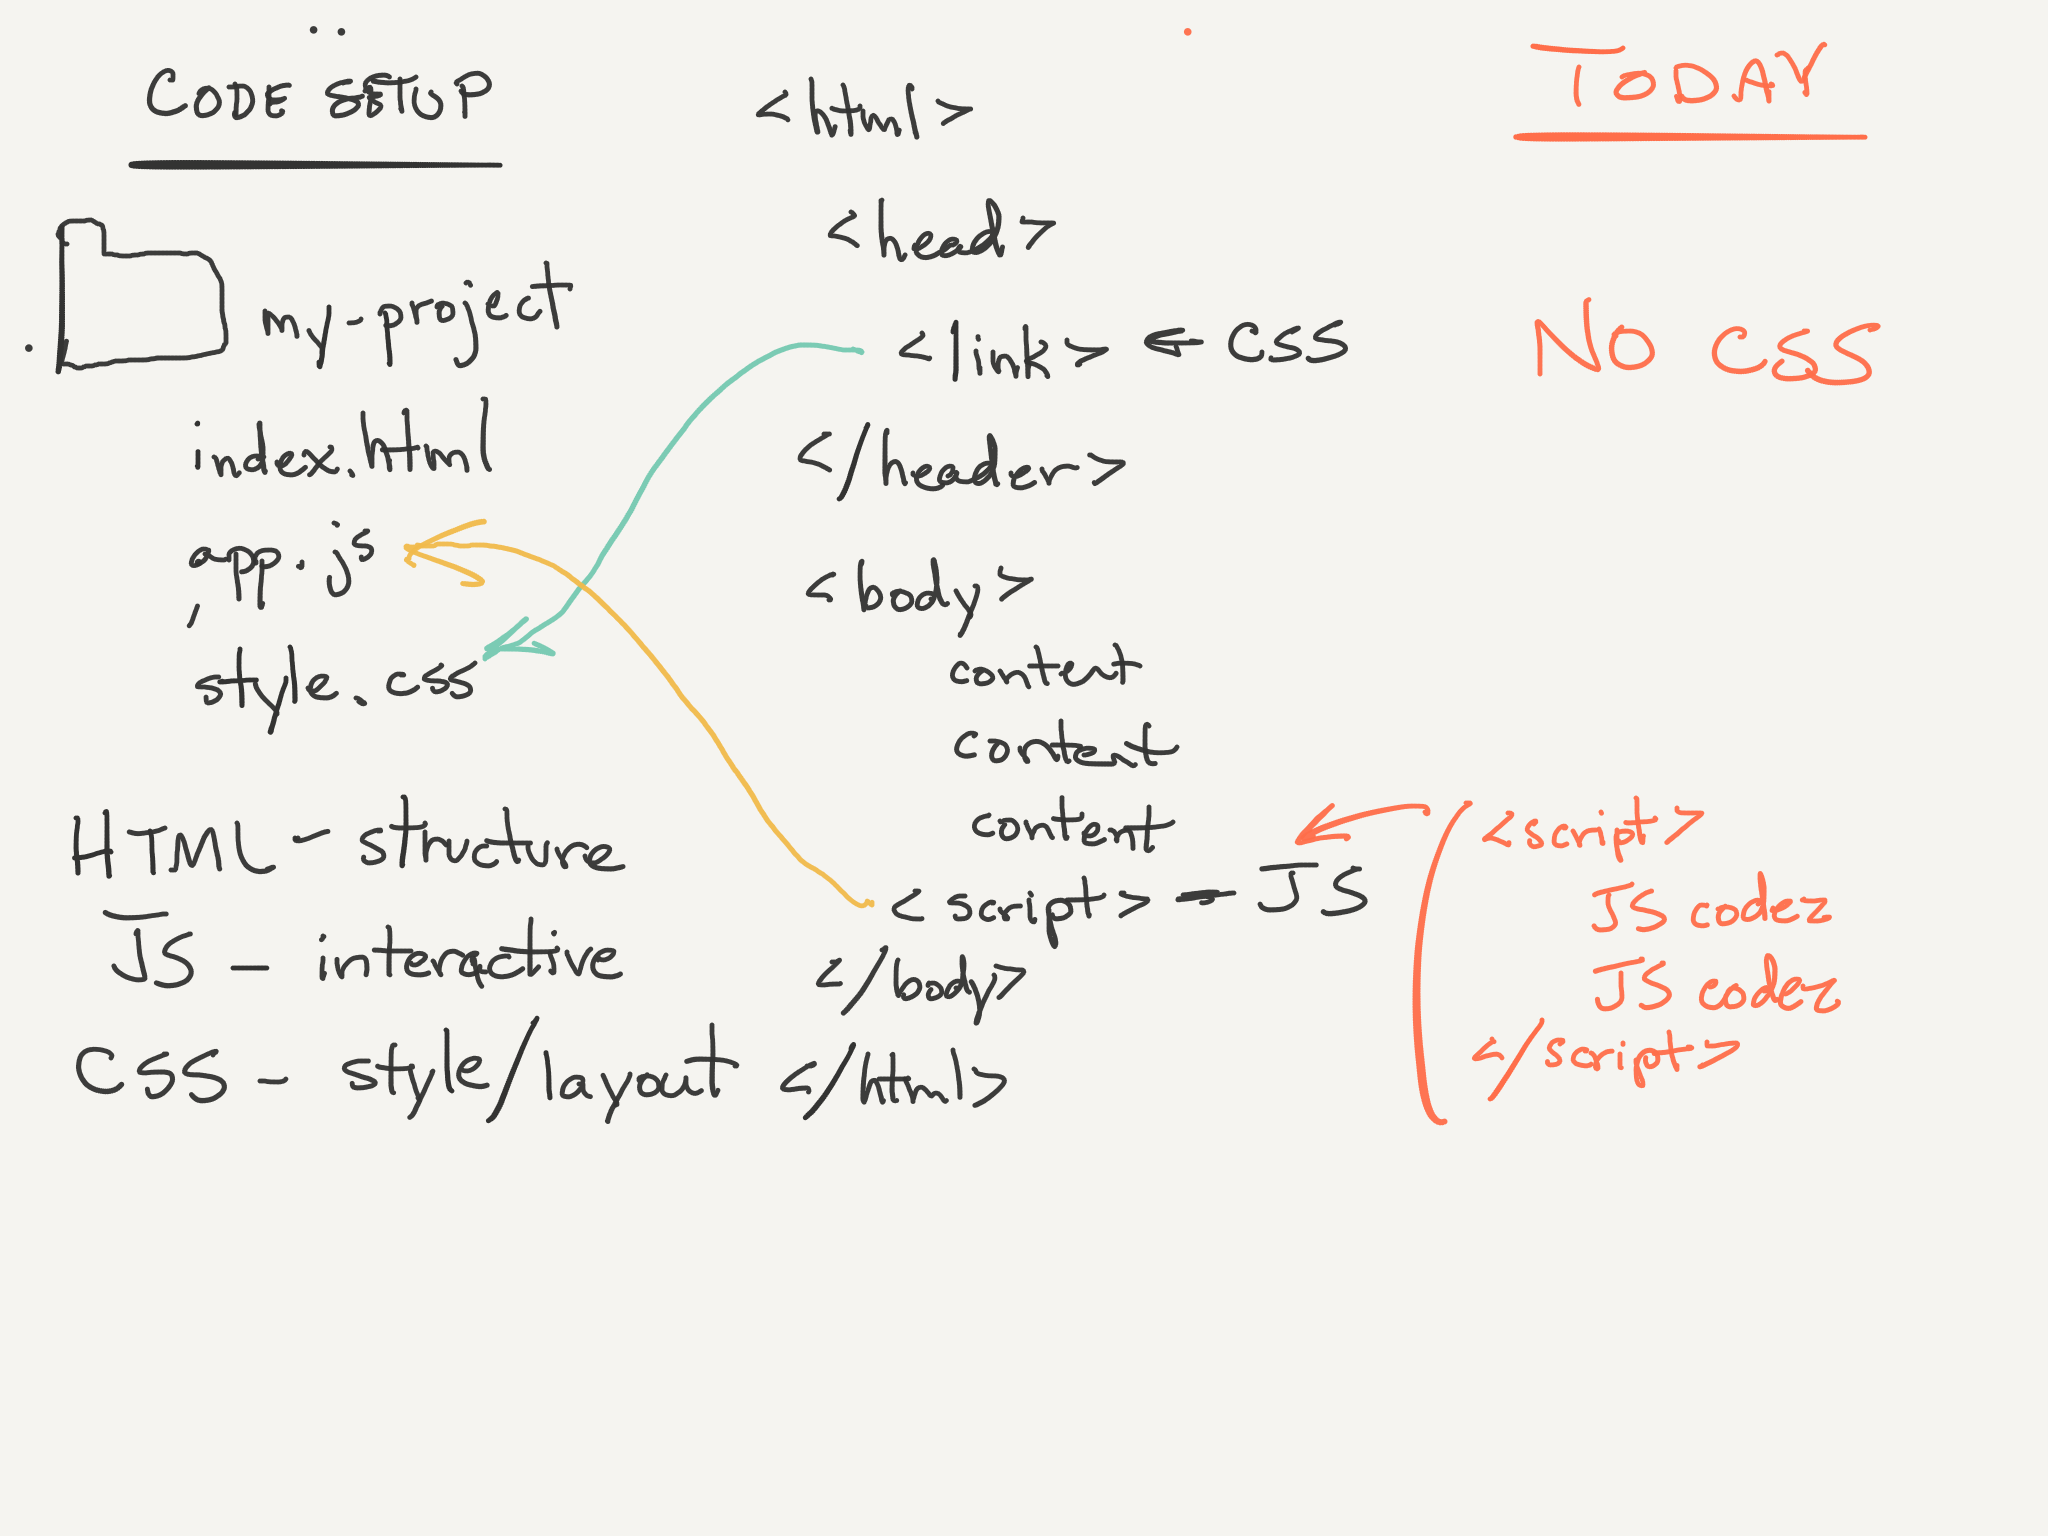 CODE SETUP
my-project
index.html
app.js
style.css
HTML - structure
JS - interactive
CSS - style/layout
<html>
<head>
<link> ← CSS
</header>
<body>
content
content
content
<script> - JS
</body>
</html>
TODAY
NO CSS
<script>
JS codez
JS codez
</script>